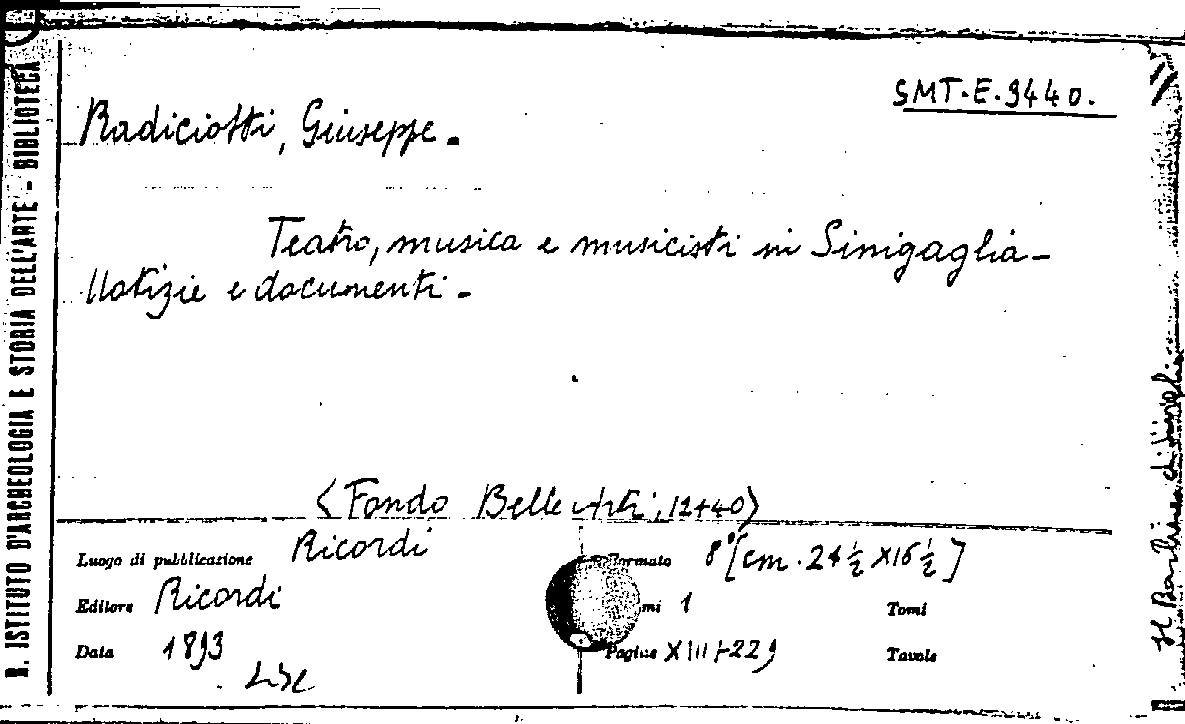 SMT-E-9440.
Radiciotti, Giuseppe.
Teatro, musica e musicisti in Sinigaglia-
Notizie e documenti.
<Fondo Belle Arti, 12440>
Luogo di pubblicazione Ricordi
Formato 8° [cm. 24 1/2 X 16 1/2]
Editore Ricordi
mi 1
Tomi
Data 1893
Pagine XIII+229
Tavole
R. ISTITUTO D'ARCHEOLOGIA E STORIA DELL'ARTE - BIBLIOTECA